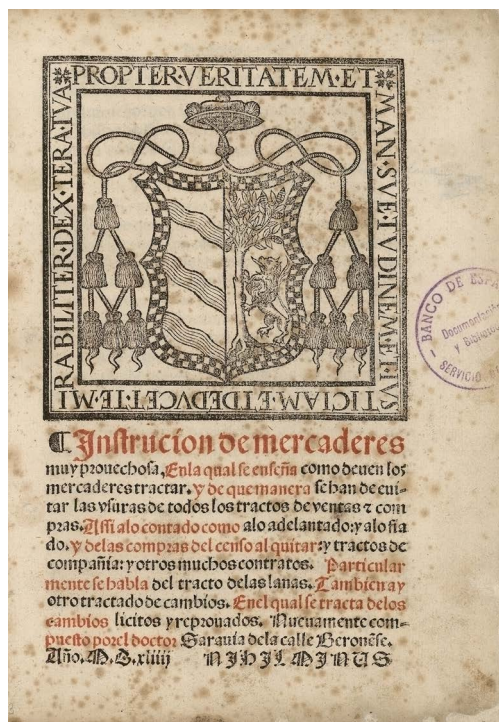 PROPTER·VERITATEM·ET·
MAN·SVETVDINEM·ET·IVS
TICIAM·ET·DEDVCET·TE·MI
RABILITER·DEXTERA·TVA
BANCO DE ESPA
Documentación
y Biblioteca
SERVICIO
Instrucion de mercaderes
muy prouechosa, Enla qual se enseña como deuen los
mercaderes tractar. y de que manera se han de eui-
tar las vsuras de todos los tractos de ventas ⁊ com
pras. Assi alo contado como alo adelantado: y alo fia
do. y delas compras del censo al quitar: y tractos de
compañia: y otros muchos contratos. Particular
mente se habla del tracto delas lanas. Tambien ay
otro tractado de cambios. Enel qual se tracta delos
cambios licitos y reprouados. Nueuamente com-
puesto por el doctor Sarauia dela calle Beronēse.
Año. M. D. xliiij NIHIL MINUS